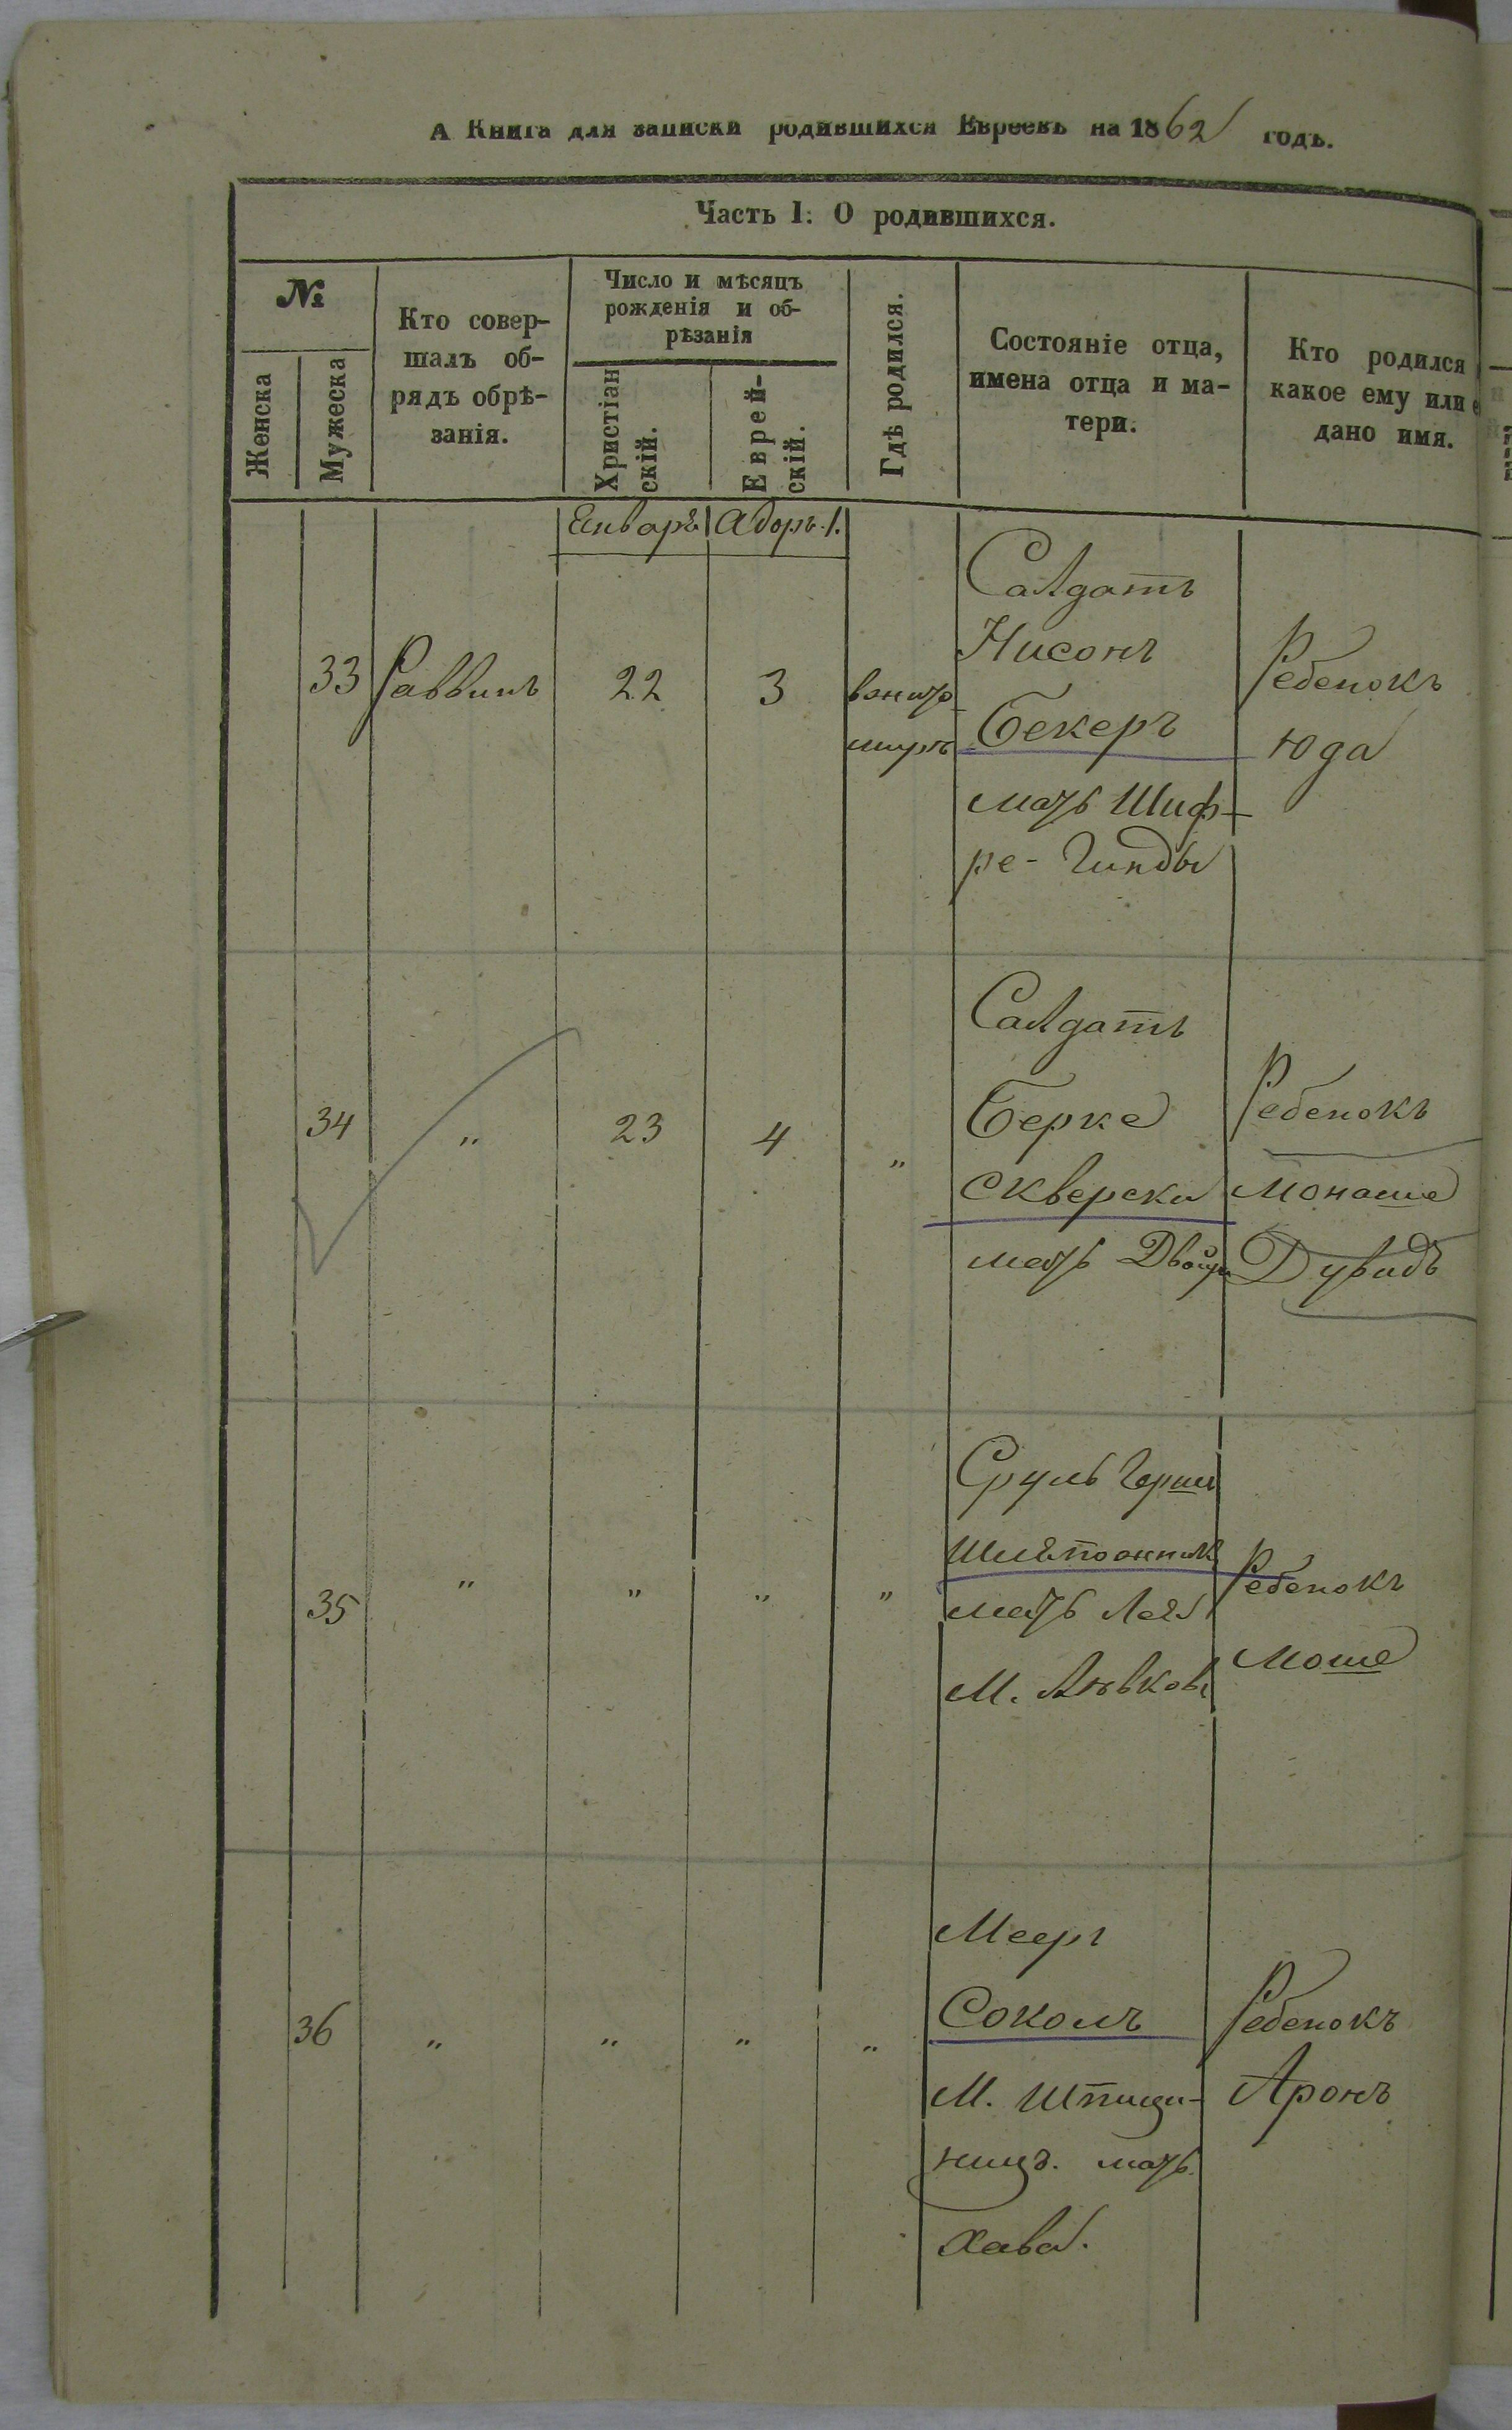 А Книга для записки родившихся Евреевъ на 1862 годъ.
Часть I: О родившихся.
№
Женска
Мужеска
Кто совер-
шалъ об-
рядъ обрѣ-
занія.
Число и мѣсяцъ
рожденія и об-
рѣзанія
Христіан
скій.
Еврей-
скій.
Гдѣ родился.
Состояніе отца,
имена отца и ма-
тери.
Кто родился
какое ему или
дано имя.
Январь
Адаръ 1.
33
Раввинъ
22
3
Салдатъ
Нисонъ
Бекеръ
мать Шиф-
ре-Гинды
Ребенокъ
Юда
34
"
23
4
"
Салдатъ
Берке
Скверски
мать Двойра
Ребенокъ
Монаше
Дувидъ
35
"
"
"
"
Сруль Герш
мать Лея
М.
Ребенокъ
Моше
36
"
"
"
"
Мееръ
Соколъ
М. Шпичи-
ницъ. мать
Хава.
Ребенокъ
Аронъ